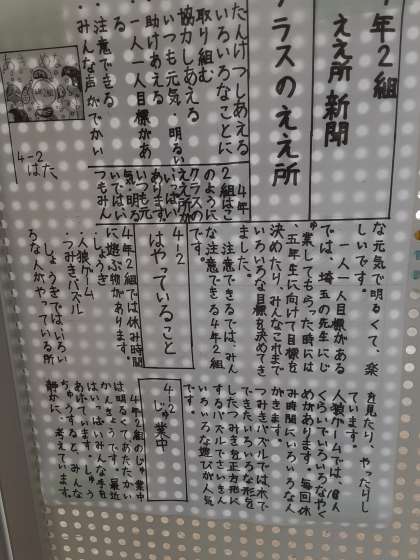 年2組
ええ所新聞
クラスのええ所
だんけつしあえる
いろいろなことに
取り組む
協力しあえる
いつも元気・明るい
助けあえる
・一人一人目標があ
る
・注意できる
・みんな声がでかい
4-2
はた
4年
2組はこ
のように
クラスの
ええ所が
いっぱい
あります。
いつも元
気・明る
いではい
つもみん
な元気で明るくて、楽
しいです。
一人一人目標がある
では、埼玉の先生にじ
ゅ業してもらった時には
五年生に向けて目標を
決めたり、みんなこれまで
いろいろな目標を決めてき
ました。
注意できるでは、みん
な注意できる4年2組
です。
4-2
はやっていること
4年2組では休み時間
に遊ぶ物があります。
・しょうぎ
・人狼ゲーム
・つみきパズル
しょうぎではいろい
ろな人がやっている所
を見たり、やったりし
ています。
人狼ゲームでは、10人
くらいでいろいろなやく
めがあります。毎回休
み時間にいろいろな人
がきます。
つみきパズルでは木で
できたいろいろな形を
したつみきを正方形に
するパズルでさいきん
いろいろな遊びが人気
です。
4-2
じゅ業中
4年2組のじゅ業中
は明るくてあたたかい
かんきょうです。最近
はいっぱいみんな手を
あげています。しゅう
ちゅうすると、みんな
静かに、考えています。